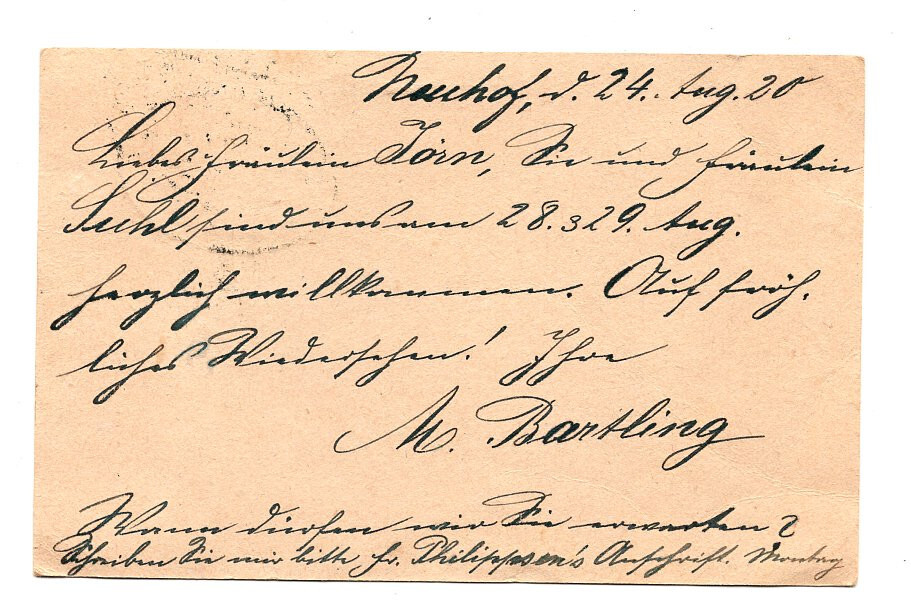 Neuhof, d. 24. Aug. 20
Liebes Fräulein Jörn, Sie und Fräulein
Suhl sind uns am 28. 29. Aug.
herzlich willkommen. Auf fröh-
liches Wiedersehen! Ihre
M. Bartling
Wann dürfen wir Sie erwarten?
Schreiben Sie mir bitte Fr. Philippsen's Anschrift. Montag